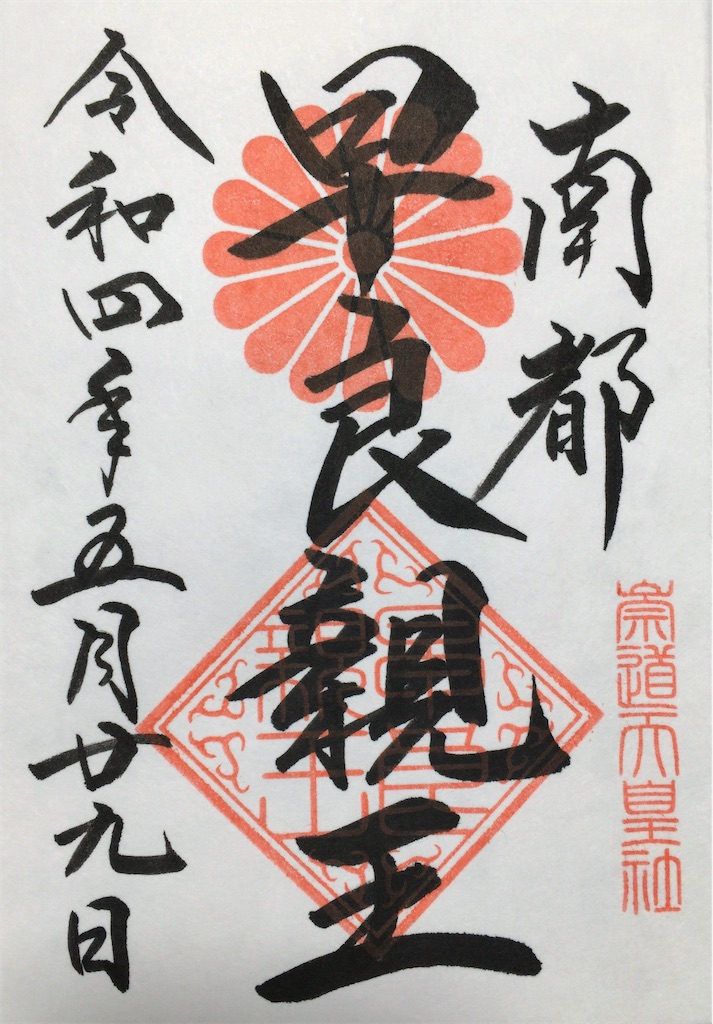 南都
崇道天皇社
早良親王
早良親王
令和四年五月廿九日